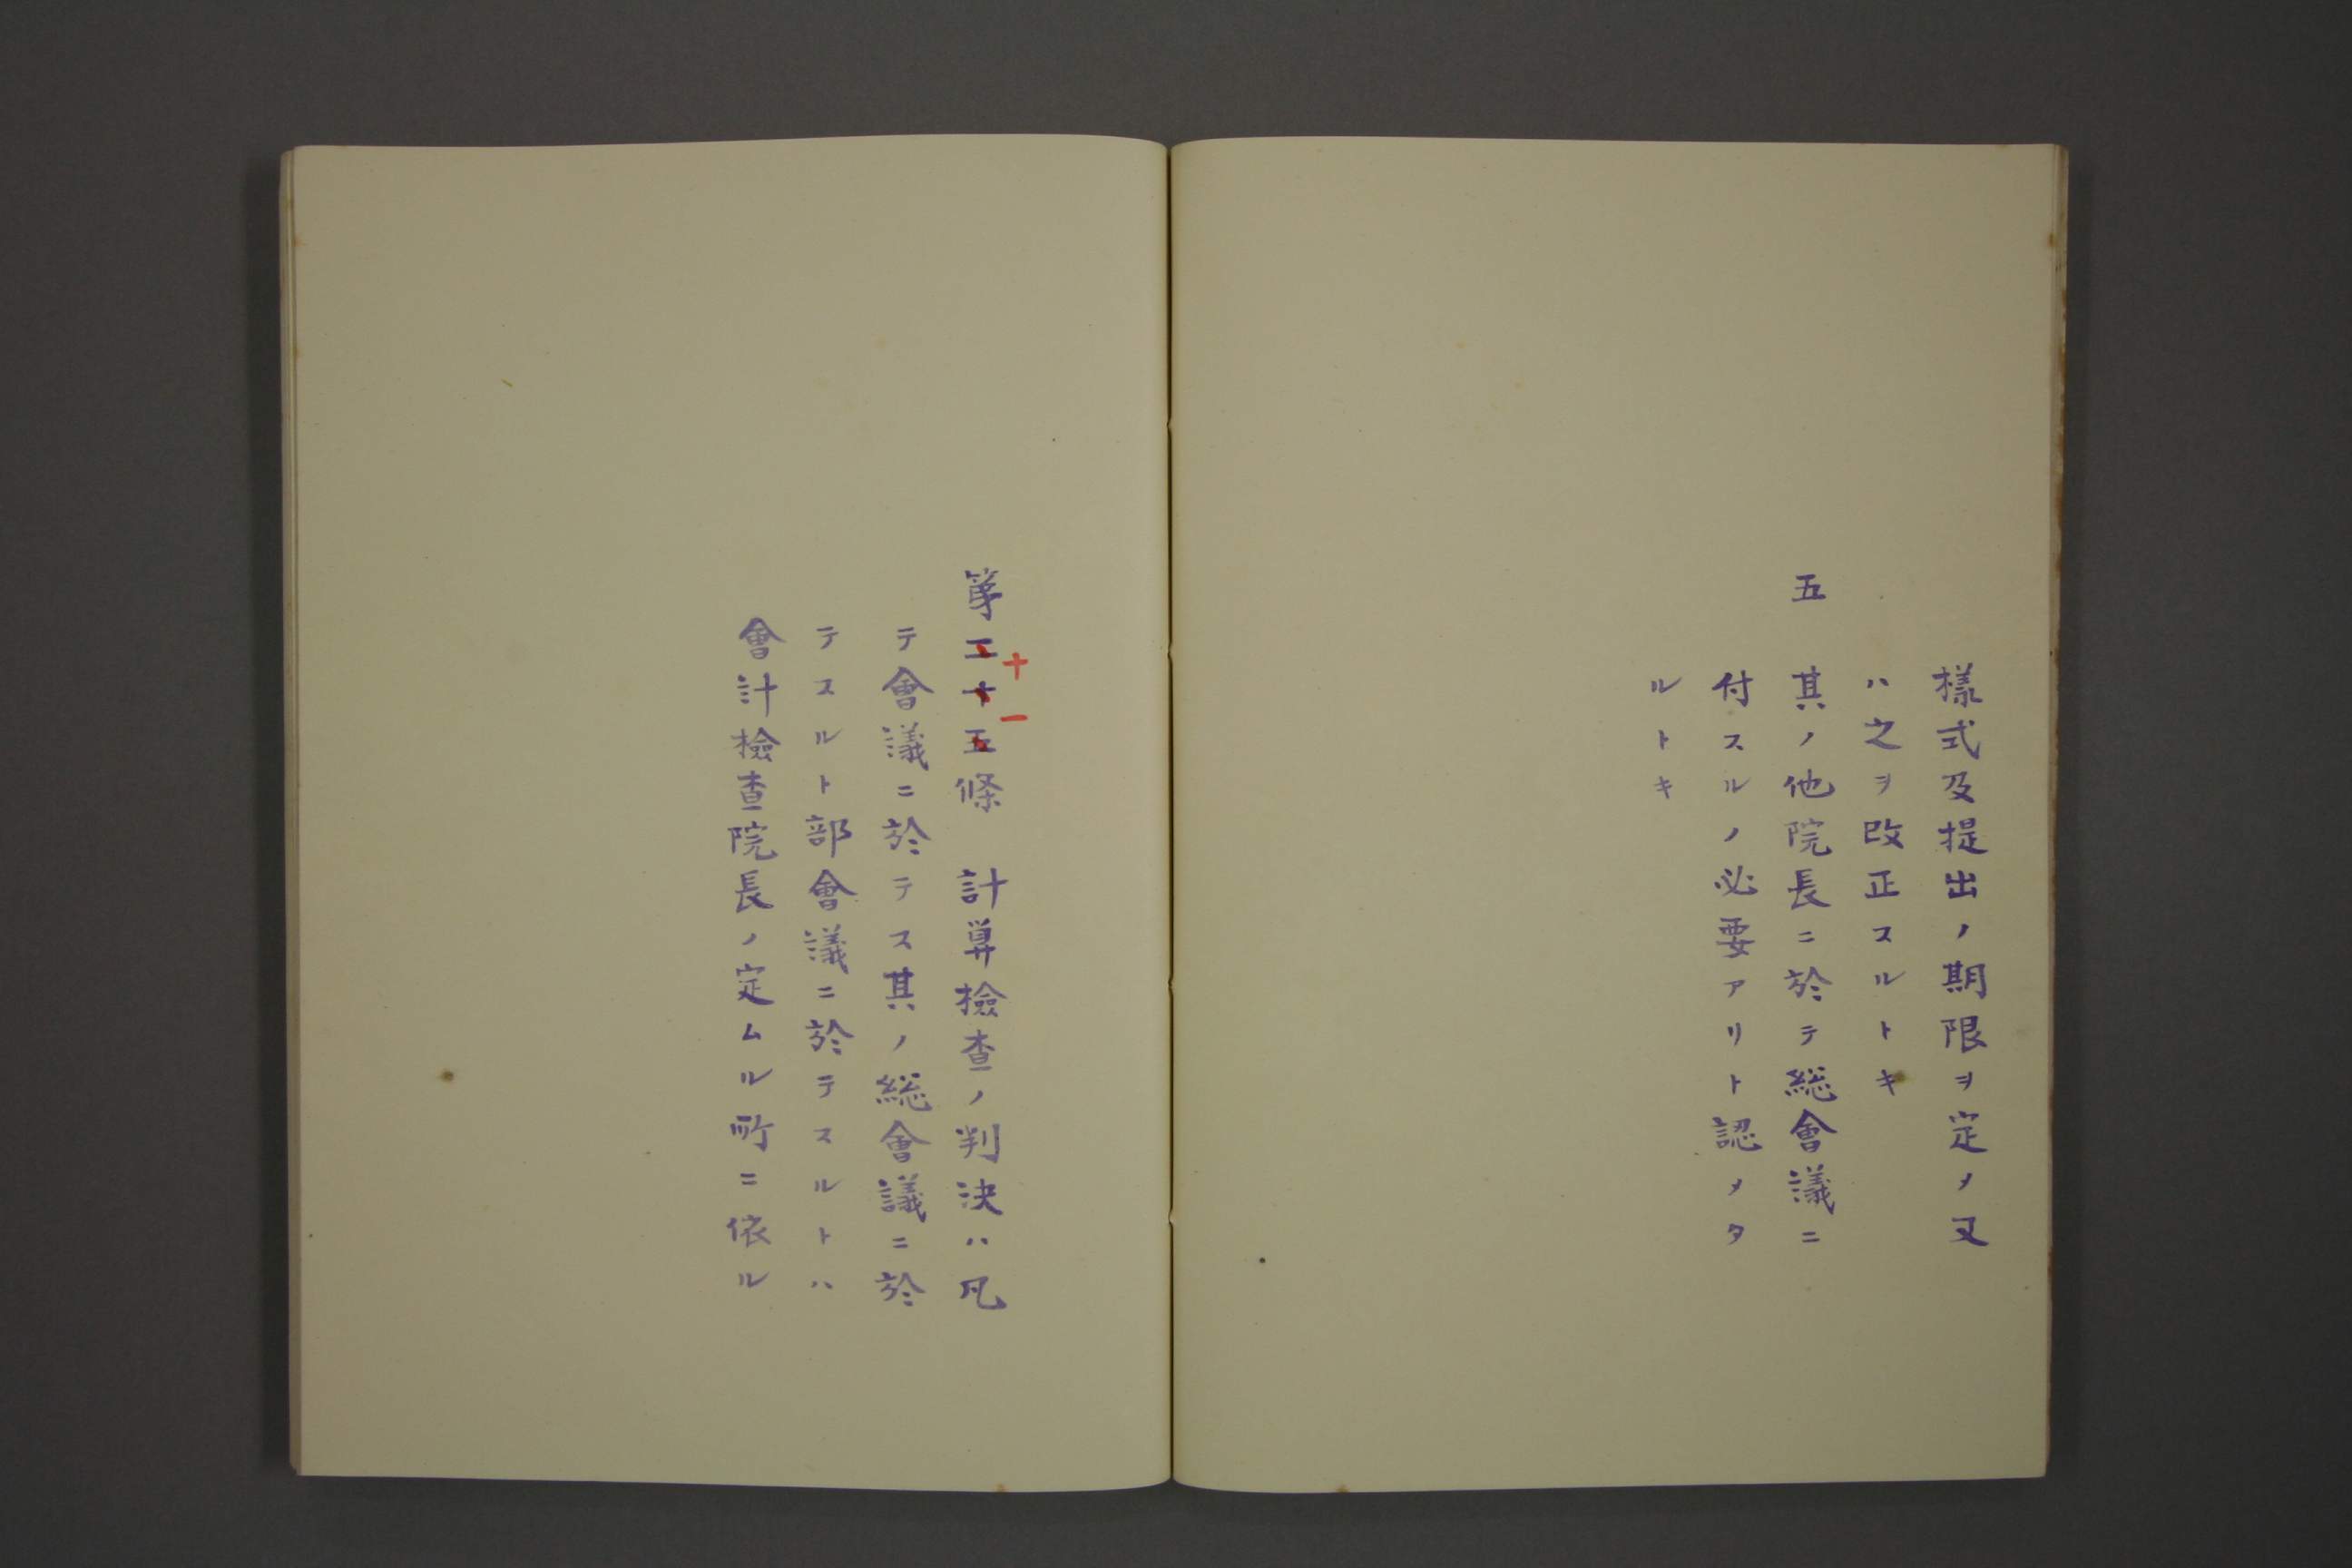 樣式及提出ノ期限ヲ定メ又
ハ之ヲ改正スルトキ
五　其ノ他院長ニ於テ総會議ニ
付スルノ必要アリト認メタ
ルトキ
十一
第二十五條　計算檢查ノ判決ハ凡
テ會議ニ於テス其ノ総會議ニ於
テスルト部會議ニ於テスルトハ
會計檢查院長ノ定ムル所ニ依ル